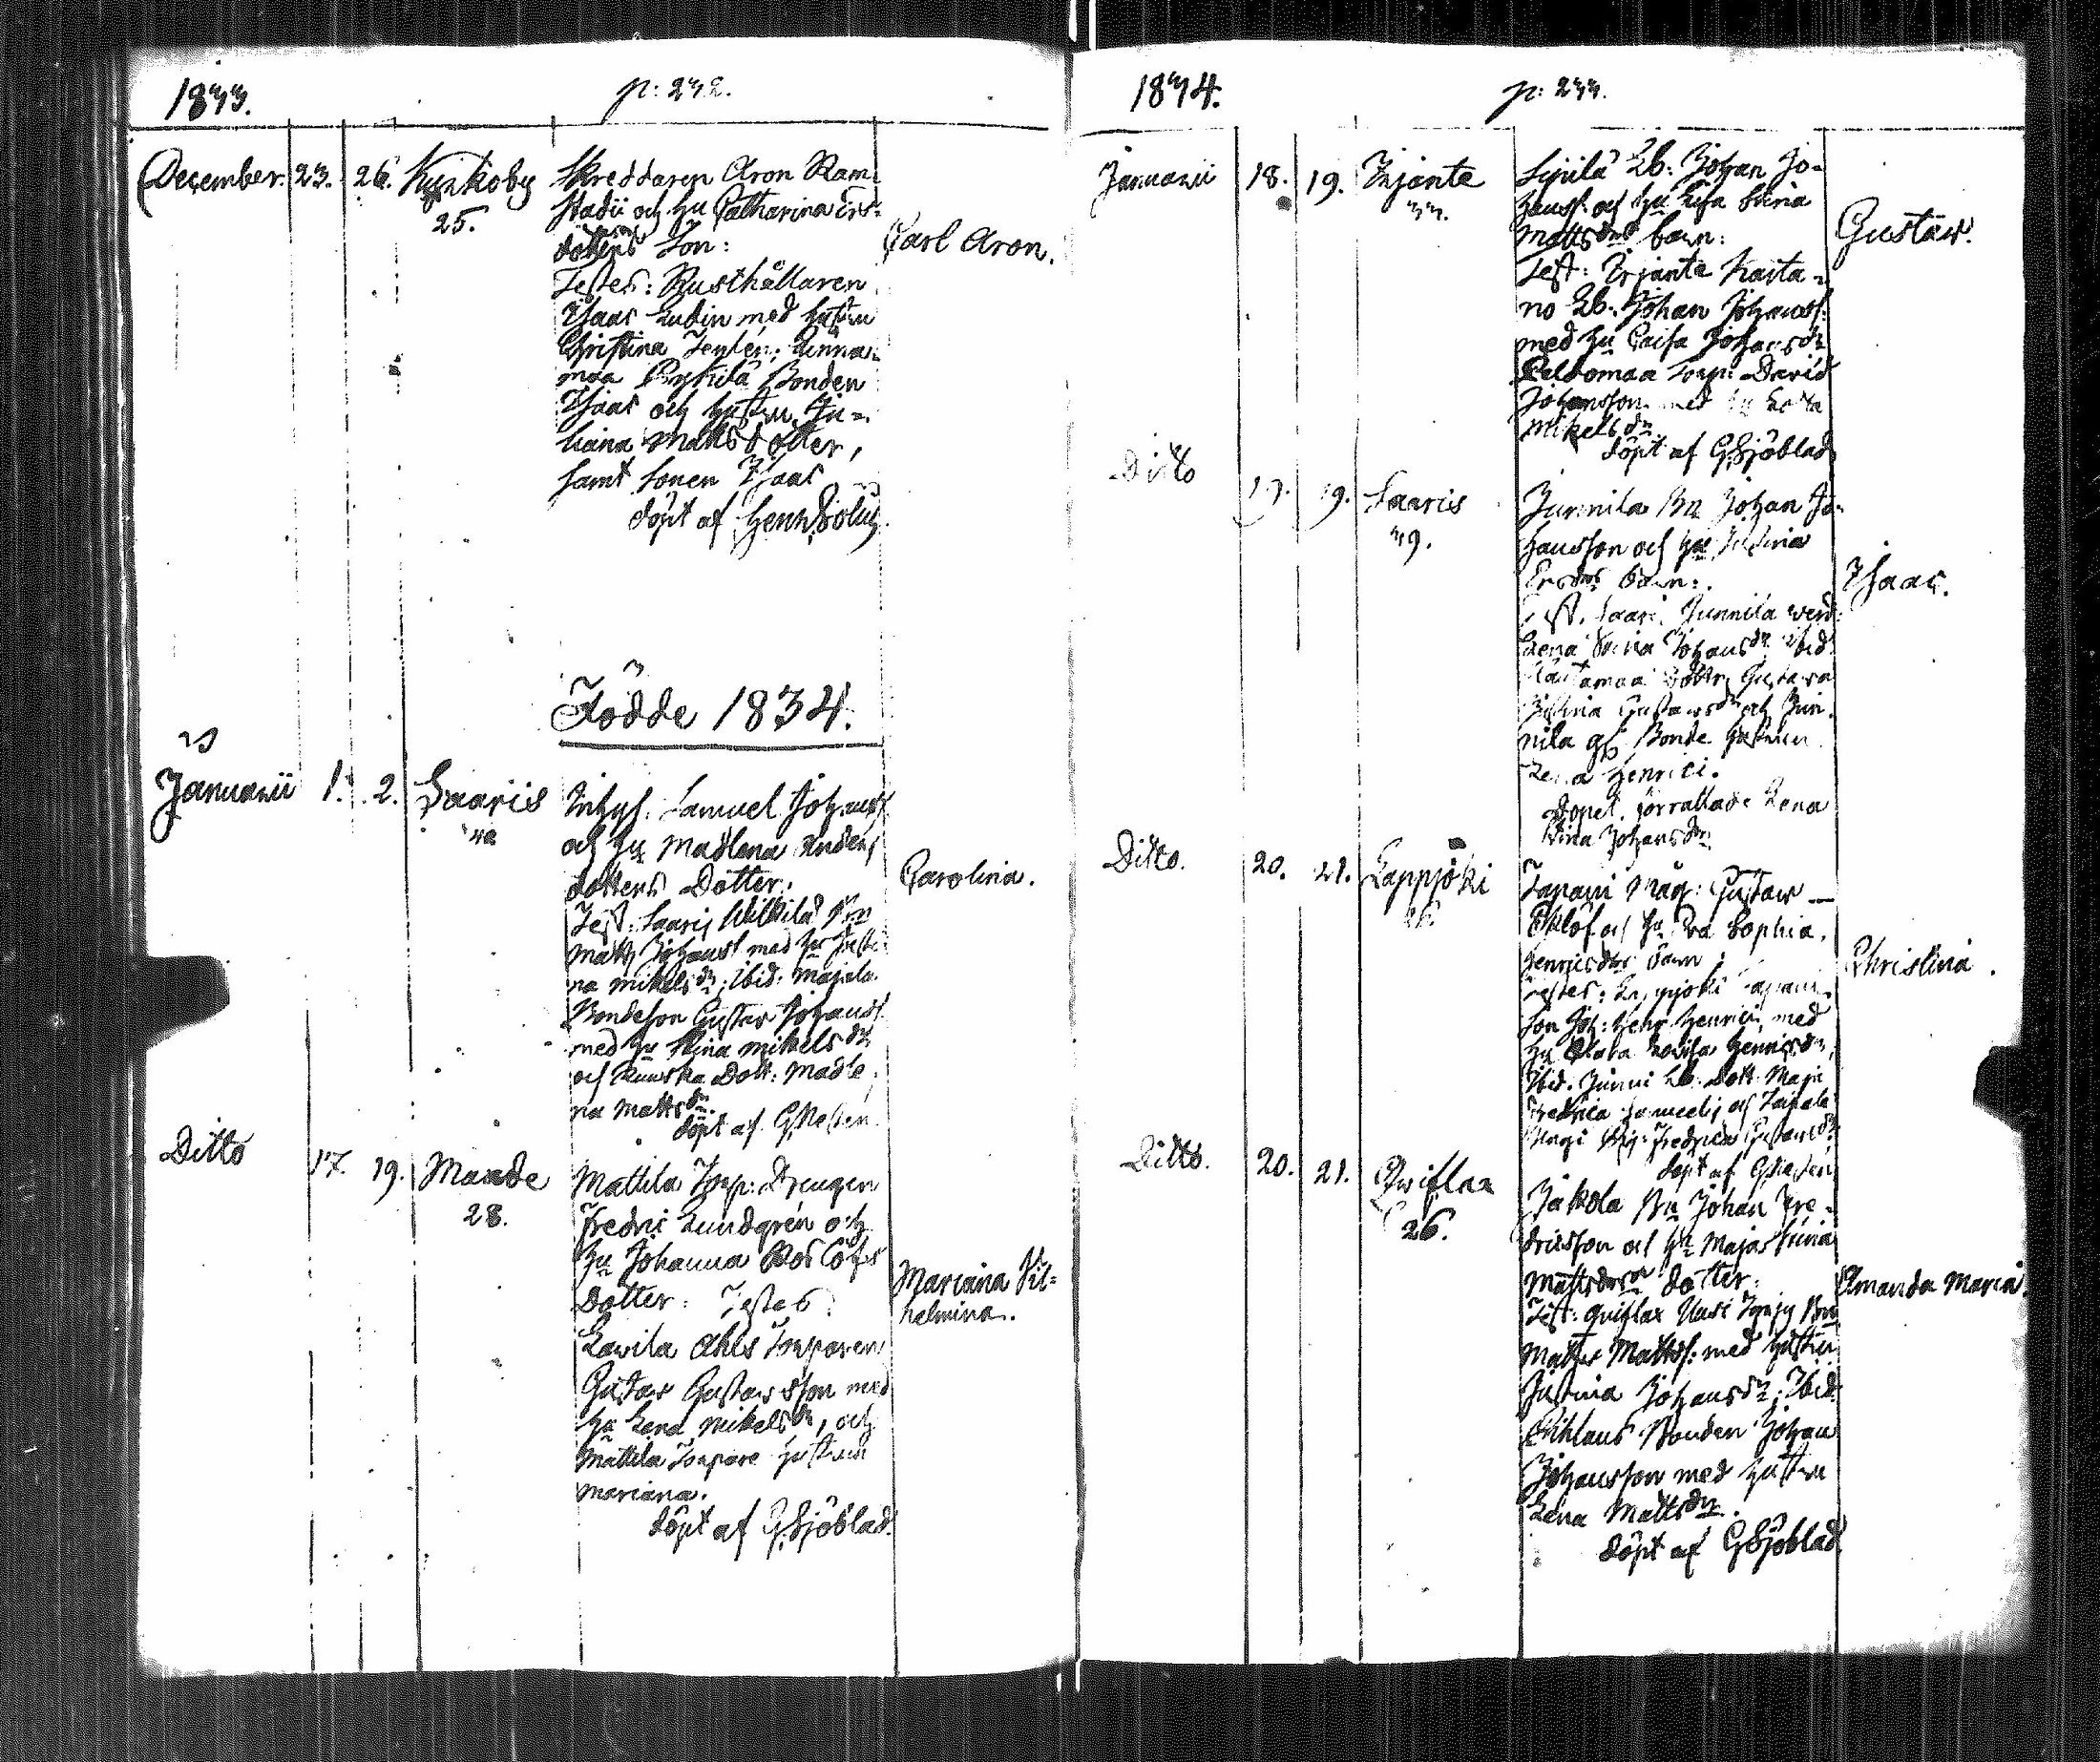 1833.
p: 232.
December. 23. 26. Kyrkoby
25.
Skreddaren Aron Ram-
stadii och hu Catharina Ers-
dotters Son:
Testes: Rusthållaren
Isaac Ludin med hustru
Christina Tenlén; Linna-
maa Pyhilä Bonden
Isaac och hustru Ju-
liana Mattsdotter,
samt Sonen Isaac
döpt af
Carl Aron.
Födde 1834.
Januarii 1. 2. Saaris
Inhys. Samuel Johanss.
och hu Madlena Anders
dotters Dotter:
Test: Saaris Wilkilä Bn
Matts Johanss med hu
na Mikelsdr; ibid: Majala
Bondeson Gustav Johanss.
med hu Stina Mikelsdr
och Dott: Madle-
na Mattsdr.
döpt af
Carolina.
Ditto 17. 19. Maade
28.
Mattila Torp: Drengen
Fredric Lundgrén och
hu Johanna
Dotter: Testes:
Lavila Ahls Torparen
Gustav Gustavsson med
hu Lena Mikelsdr, och
Mattila Torpare hustrun
Mariana.
döpt af GSjöblad.
Mariana Vil-
helmina.
1834.
p: 233.
Januarii 18. 19. Irjante
33.
Sipilä Lb: Johan Jo-
hanss: och hu Caisa Stina
Mattsdrs barn:
Test: Irjante Kasta-
no Lb: Johan Johanss:
med hu Caisa Johansdr
Peldomaa Torp: David
Johansson med hu
Mikelsdr.
döpt af GSjöblad
Gustav.
Ditto 17. 19. Saaris
39.
Junnila Bn Johan Jo-
hansson och hu Justina
Ersdrs barn:
Test. Saari Junnila
Lena Stina Johansdr ibid
Rautamaa Gustava
Justina Gustavsdr och Jun-
nila gl. Bonde hustrun
Lena Henrici.
Döpet förrättade Lena
Stina Johansdr.
Isaac.
Ditto. 20. 21. Lappjoki
Tapani Måg: Gustav
Eklöf och hu Eva Sophia
Henricsdrs barn:
Testes: Lappjoki Tapani
Son Joh: Henr. Henrici, med
hu Clara Lovisa Henricsdr,
Ibid. Junni Lb: Dott. Maja
Fredrica Samuelis och Taipale
Pig: Fredrica Gustavsdr
döpt af
Christina.
Ditto. 20. 21. Qwiflax
26.
Jakola Bn Johan Fre-
dricsson och hu Maja Stina
Mattsdrs dotter:
Test: Quiflax Uusi Torp
Matts Mattss: med hustru
Justina Johansdr; Ibid
Bonden Johan
Johansson med hustru
Lena Mattsdr.
döpt af GSjöblad
Amanda Maria.